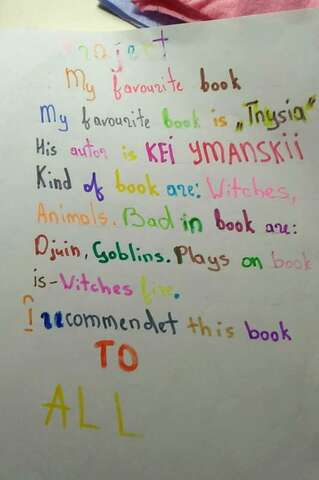 Project
My favourite book
My favourite book is „Tnysia"
His autor is KEI YMANSKII
Kind of book are: Witches,
Animals. Bad in book are:
Djuin, Goblins. Plays on book
is-Witches fire.
I recommendet this book
TO
ALL